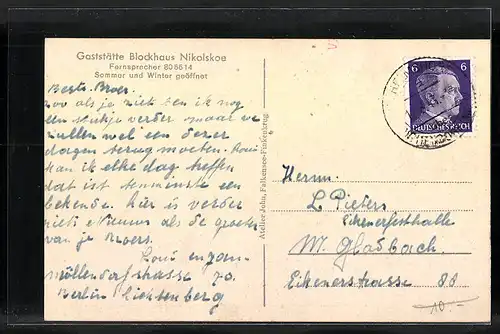 Gaststätte Blockhaus Nikolskoe
Fernsprecher 805614
Sommer und Winter geöffnet
Beste Broer.
zoo als je ziet ben ik nog
een stukje verder maar we
zullen wel een dezer
dagen terug moeten.
kan ik elke dag treffen
dat is tenminste een
bekende. hier is verder
niets nieuws als de groeten
van je Broers.
Möllendorfstrasse 70.
Berlin Lichtenberg
Atelier John, Falkensee-Finkenkrug
6 6
DEUTSCHES REICH
Herrn.
L Pieters
M. Gladbach
Eikenerstrasse 88
10.-